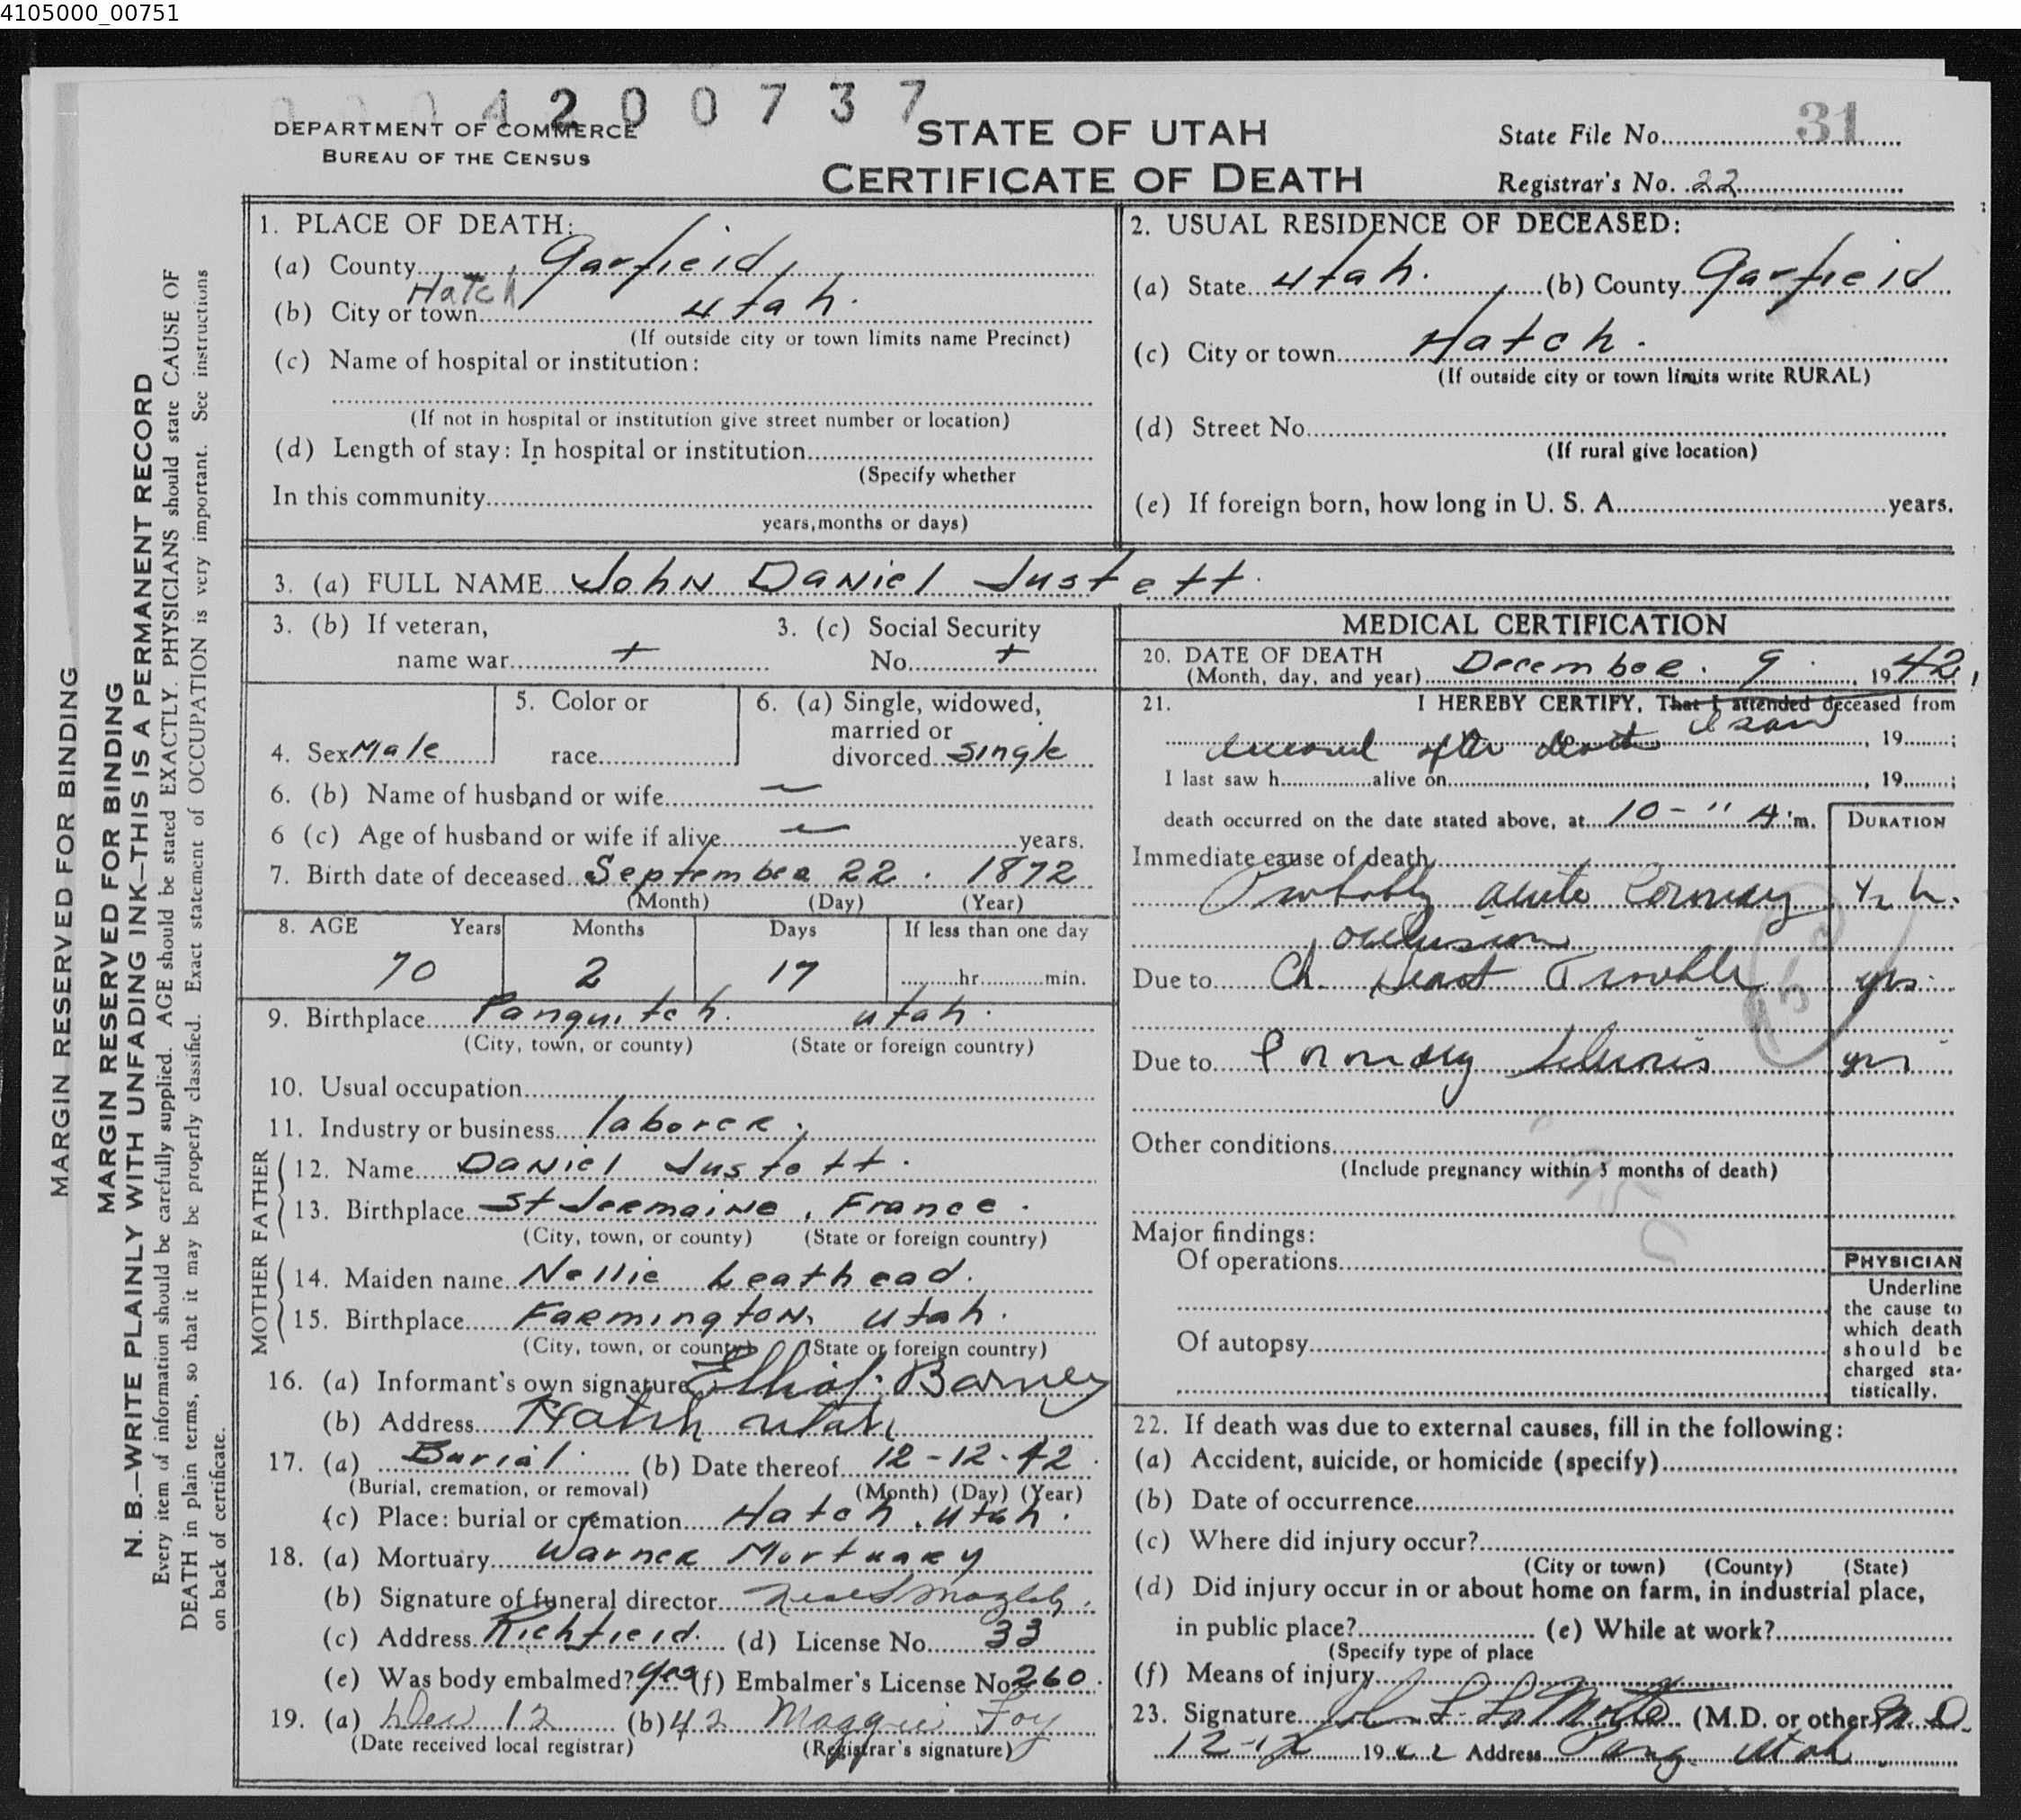 4105000_00751
0004200737
DEPARTMENT OF COMMERCE
BUREAU OF THE CENSUS
STATE OF UTAH
CERTIFICATE OF DEATH
State File No. 31
Registrar's No. 22
MARGIN RESERVED FOR BINDING
MARGIN RESERVED FOR BINDING
N. B.—WRITE PLAINLY WITH UNFADING INK—THIS IS A PERMANENT RECORD
Every item of information should be carefully supplied. AGE should be stated EXACTLY. PHYSICIANS should state CAUSE OF
DEATH in plain terms, so that it may be properly classified. Exact statement of OCCUPATION is very important. See instructions
on back of certificate.
1. PLACE OF DEATH:
(a) County Garfield
(b) City or town Hatch, Utah.
(If outside city or town limits name Precinct)
(c) Name of hospital or institution:
(If not in hospital or institution give street number or location)
(d) Length of stay: In hospital or institution
(Specify whether
In this community
years, months or days)
2. USUAL RESIDENCE OF DECEASED:
(a) State Utah. (b) County Garfield
(c) City or town Hatch.
(If outside city or town limits write RURAL)
(d) Street No.
(If rural give location)
(e) If foreign born, how long in U. S. A. years.
3. (a) FULL NAME John Daniel Justett.
3. (b) If veteran,
name war +
3. (c) Social Security
No. +
4. Sex Male
5. Color or
race
6. (a) Single, widowed,
married or
divorced Single
6. (b) Name of husband or wife —
6 (c) Age of husband or wife if alive — years.
7. Birth date of deceased September 22. 1872
(Month) (Day) (Year)
8. AGE Years Months Days If less than one day
70 2 17 hr. min.
9. Birthplace Panguitch. Utah.
(City, town, or county) (State or foreign country)
10. Usual occupation
11. Industry or business laborer.
FATHER
12. Name Daniel Justett.
13. Birthplace St Jermaine, France.
(City, town, or county) (State or foreign country)
MOTHER
14. Maiden name Nellie Leathead.
15. Birthplace Farmington, Utah.
(City, town, or county) (State or foreign country)
16. (a) Informant's own signature Elliot Barney
(b) Address Hatch Utah
17. (a) Burial (b) Date thereof 12-12-42
(Burial, cremation, or removal) (Month) (Day) (Year)
(c) Place: burial or cremation Hatch, Utah.
18. (a) Mortuary Warner Mortuary
(b) Signature of funeral director
(c) Address Richfield. (d) License No. 33
(e) Was body embalmed? yes (f) Embalmer's License No. 260.
19. (a) Dec 12 (b) 42 Maggie Foy
(Date received local registrar) (Registrar's signature)
MEDICAL CERTIFICATION
20. DATE OF DEATH
(Month, day, and year) December. 9. 1942,
21. I HEREBY CERTIFY, That I attended deceased from
I saw
deceased after death, 19 ;
I last saw h alive on , 19 ;
death occurred on the date stated above, at 10 - " A. m.
DURATION
Immediate cause of death
Probably acute Coronary ½ h.
occlusion
Due to Ch. Heart Trouble yrs
Due to Coronary Sclerosis yrs
Other conditions
(Include pregnancy within 3 months of death)
Major findings:
Of operations
Of autopsy
PHYSICIAN
Underline
the cause to
which death
should be
charged sta-
tistically.
22. If death was due to external causes, fill in the following:
(a) Accident, suicide, or homicide (specify)
(b) Date of occurrence
(c) Where did injury occur?
(City or town) (County) (State)
(d) Did injury occur in or about home on farm, in industrial place,
in public place? (e) While at work?
(Specify type of place
(f) Means of injury
23. Signature (M.D. or other) M.D.
12-12 1942 Address Pang. Utah